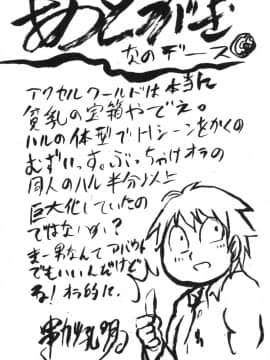 あとがき
炎のデース
アクセルワールドは本当に
貧乳の宝箱やでぇ。
ハルの体型でHシーンをかくの
むずいっす。ぶっちゃけオラの
同人のハル半分以上
巨大化していたの
ではないか?
まー男なんてアバウト
でもいいんだけど
な!オラ的に.